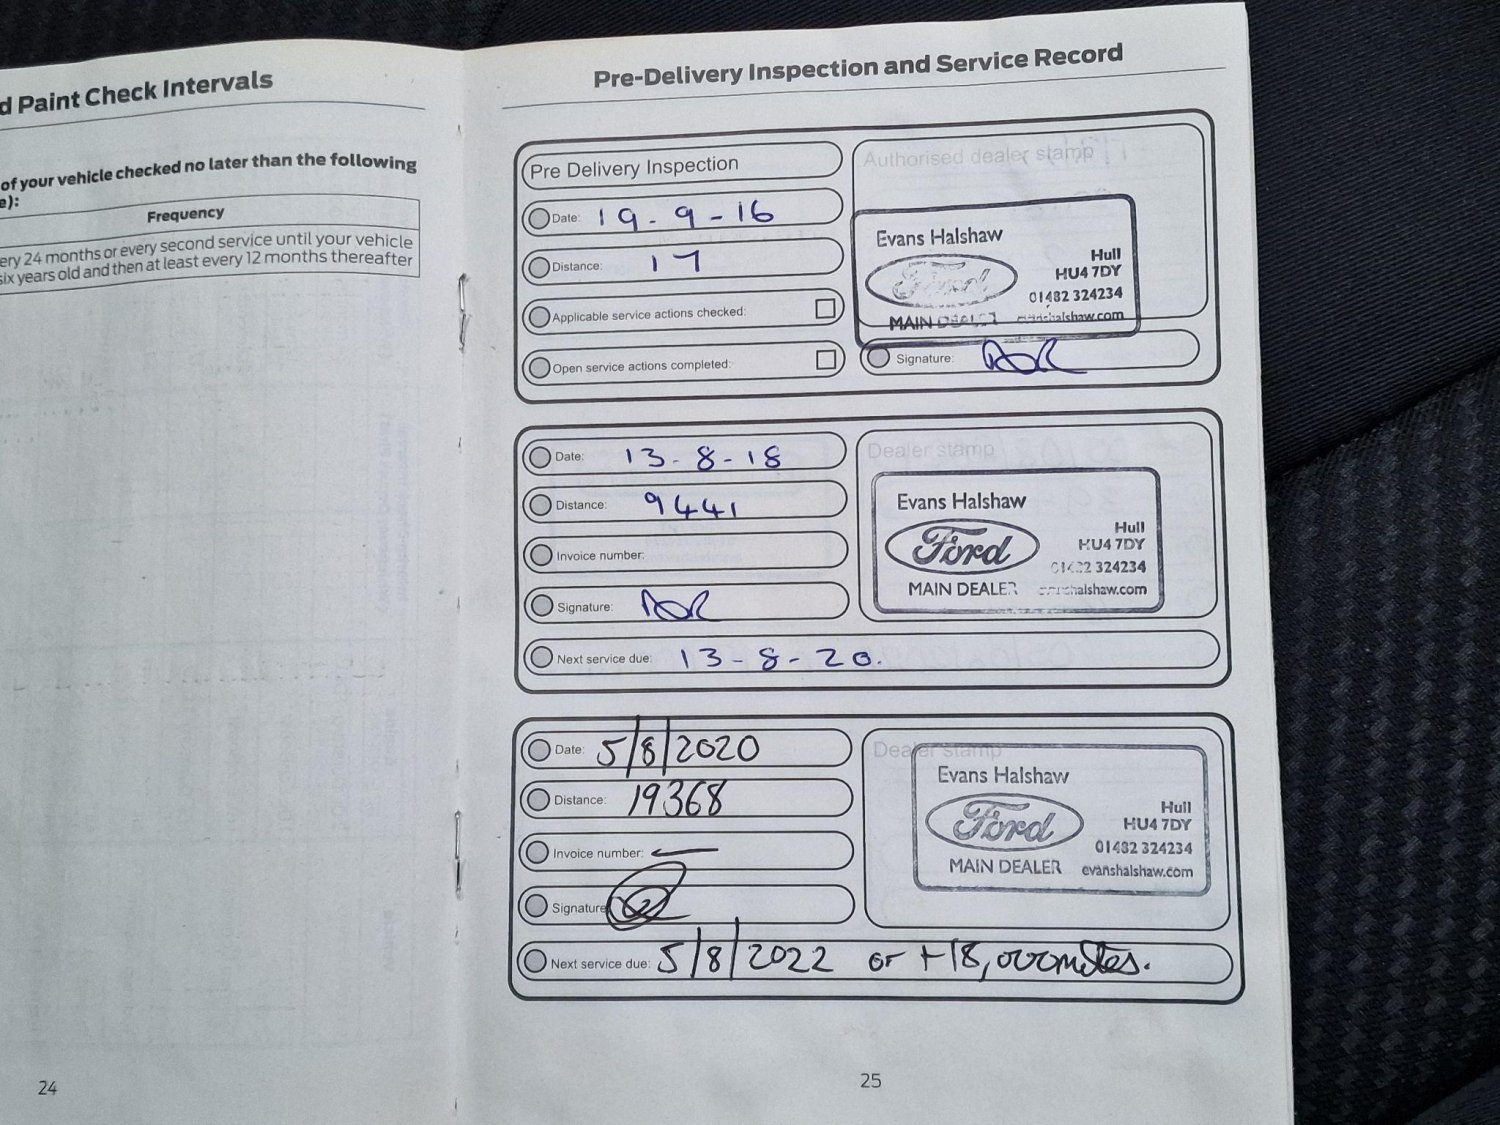 d Paint Check Intervals
of your vehicle checked no later than the following
e):
Frequency
ery 24 months or every second service until your vehicle
six years old and then at least every 12 months thereafter
24
Pre-Delivery Inspection and Service Record
Pre Delivery Inspection
Date: 19-9-16
Distance: 17
Applicable service actions checked:
Open service actions completed:
Authorised dealer stamp
Evans Halshaw
Ford
Hull
HU4 7DY
01482 324234
MAIN DEALER evanshalshaw.com
Signature:
Date: 13-8-18
Distance: 9441
Invoice number:
Signature:
Next service due: 13-8-20.
Dealer stamp
Evans Halshaw
Ford
Hull
HU4 7DY
01482 324234
MAIN DEALER evanshalshaw.com
Date: 5/8/2020
Distance: 19368
Invoice number:
Signature
Next service due: 5/8/2022 or +18,000miles.
Dealer stamp
Evans Halshaw
Ford
Hull
HU4 7DY
01482 324234
MAIN DEALER evanshalshaw.com
25